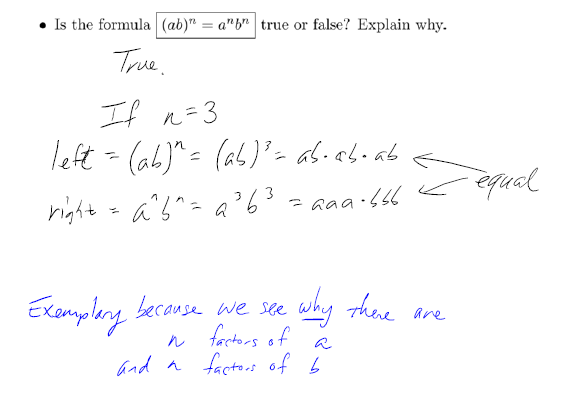 • Is the formula (ab)ⁿ = aⁿbⁿ true or false? Explain why.
True.
If n=3
left = (ab)ⁿ = (ab)³ = ab·ab·ab
equal
right = aⁿbⁿ = a³b³ = aaa·bbb
Exemplary because we see why there are
n factors of a
and n factors of b